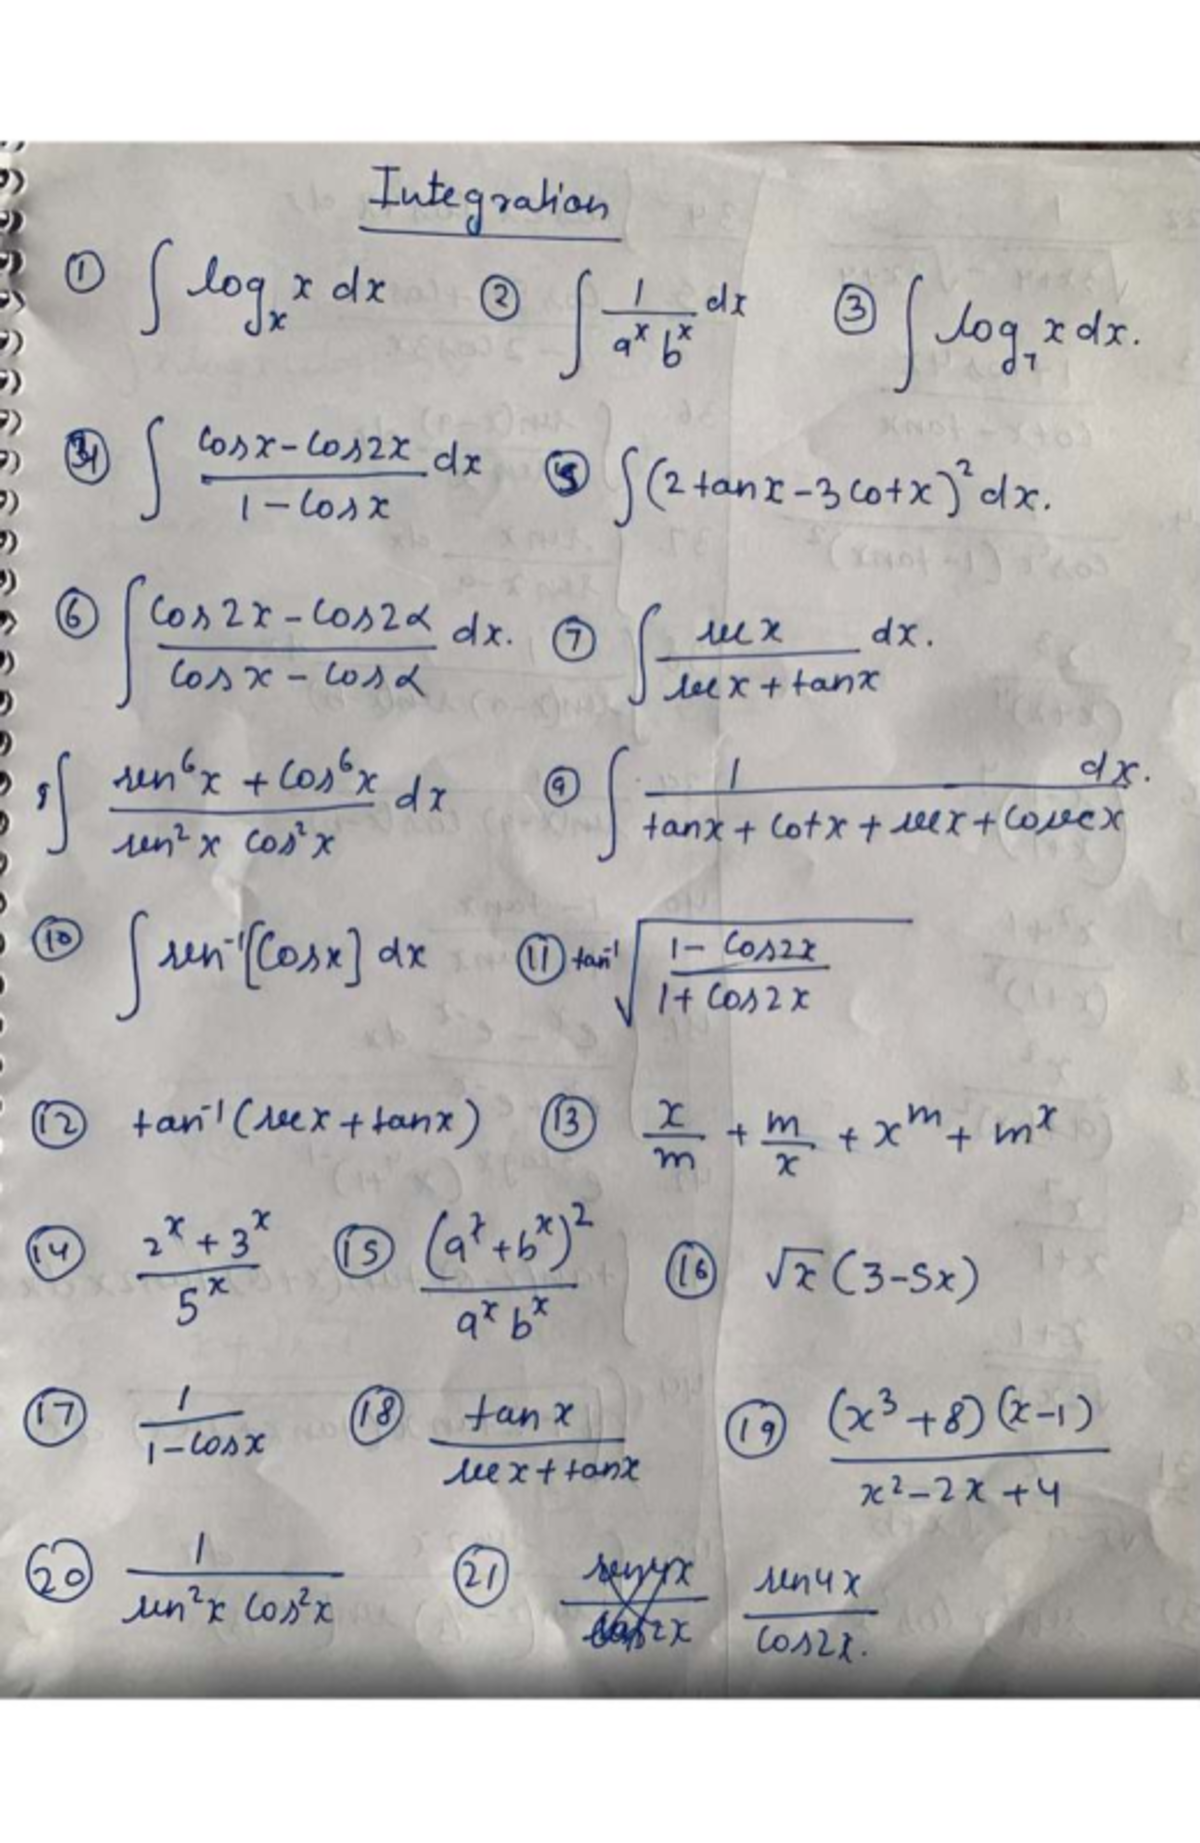 Integration
① ∫ log_x x dx ② ∫ 1/(a^x b^x) dx ③ ∫ log_7 x dx.
④ ∫ (cosx - cos2x)/(1 - cosx) dx ⑤ ∫ (2 tanx - 3 cotx)² dx.
⑥ ∫ (cos2x - cos2α)/(cosx - cosα) dx. ⑦ ∫ secx/(secx + tanx) dx.
8 ∫ (sin⁶x + cos⁶x)/(sin²x cos²x) dx ⑨ ∫ 1/(tanx + cotx + secx + cosecx) dx.
⑩ ∫ sin⁻¹[cosx] dx ⑪ tan⁻¹ √((1 - cos2x)/(1 + cos2x))
⑫ tan⁻¹(secx + tanx) ⑬ x/m + m/x + x^m + m^x
⑭ (2^x + 3^x)/5^x ⑮ (a^x + b^x)²/(a^x b^x) ⑯ √x (3 - 5x)
⑰ 1/(1 - cosx) ⑱ tanx/(secx + tanx) ⑲ (x³ + 8)(x - 1)/(x² - 2x + 4)
⑳ 1/(sin²x cos²x) ㉑ sin4x/cos2x.